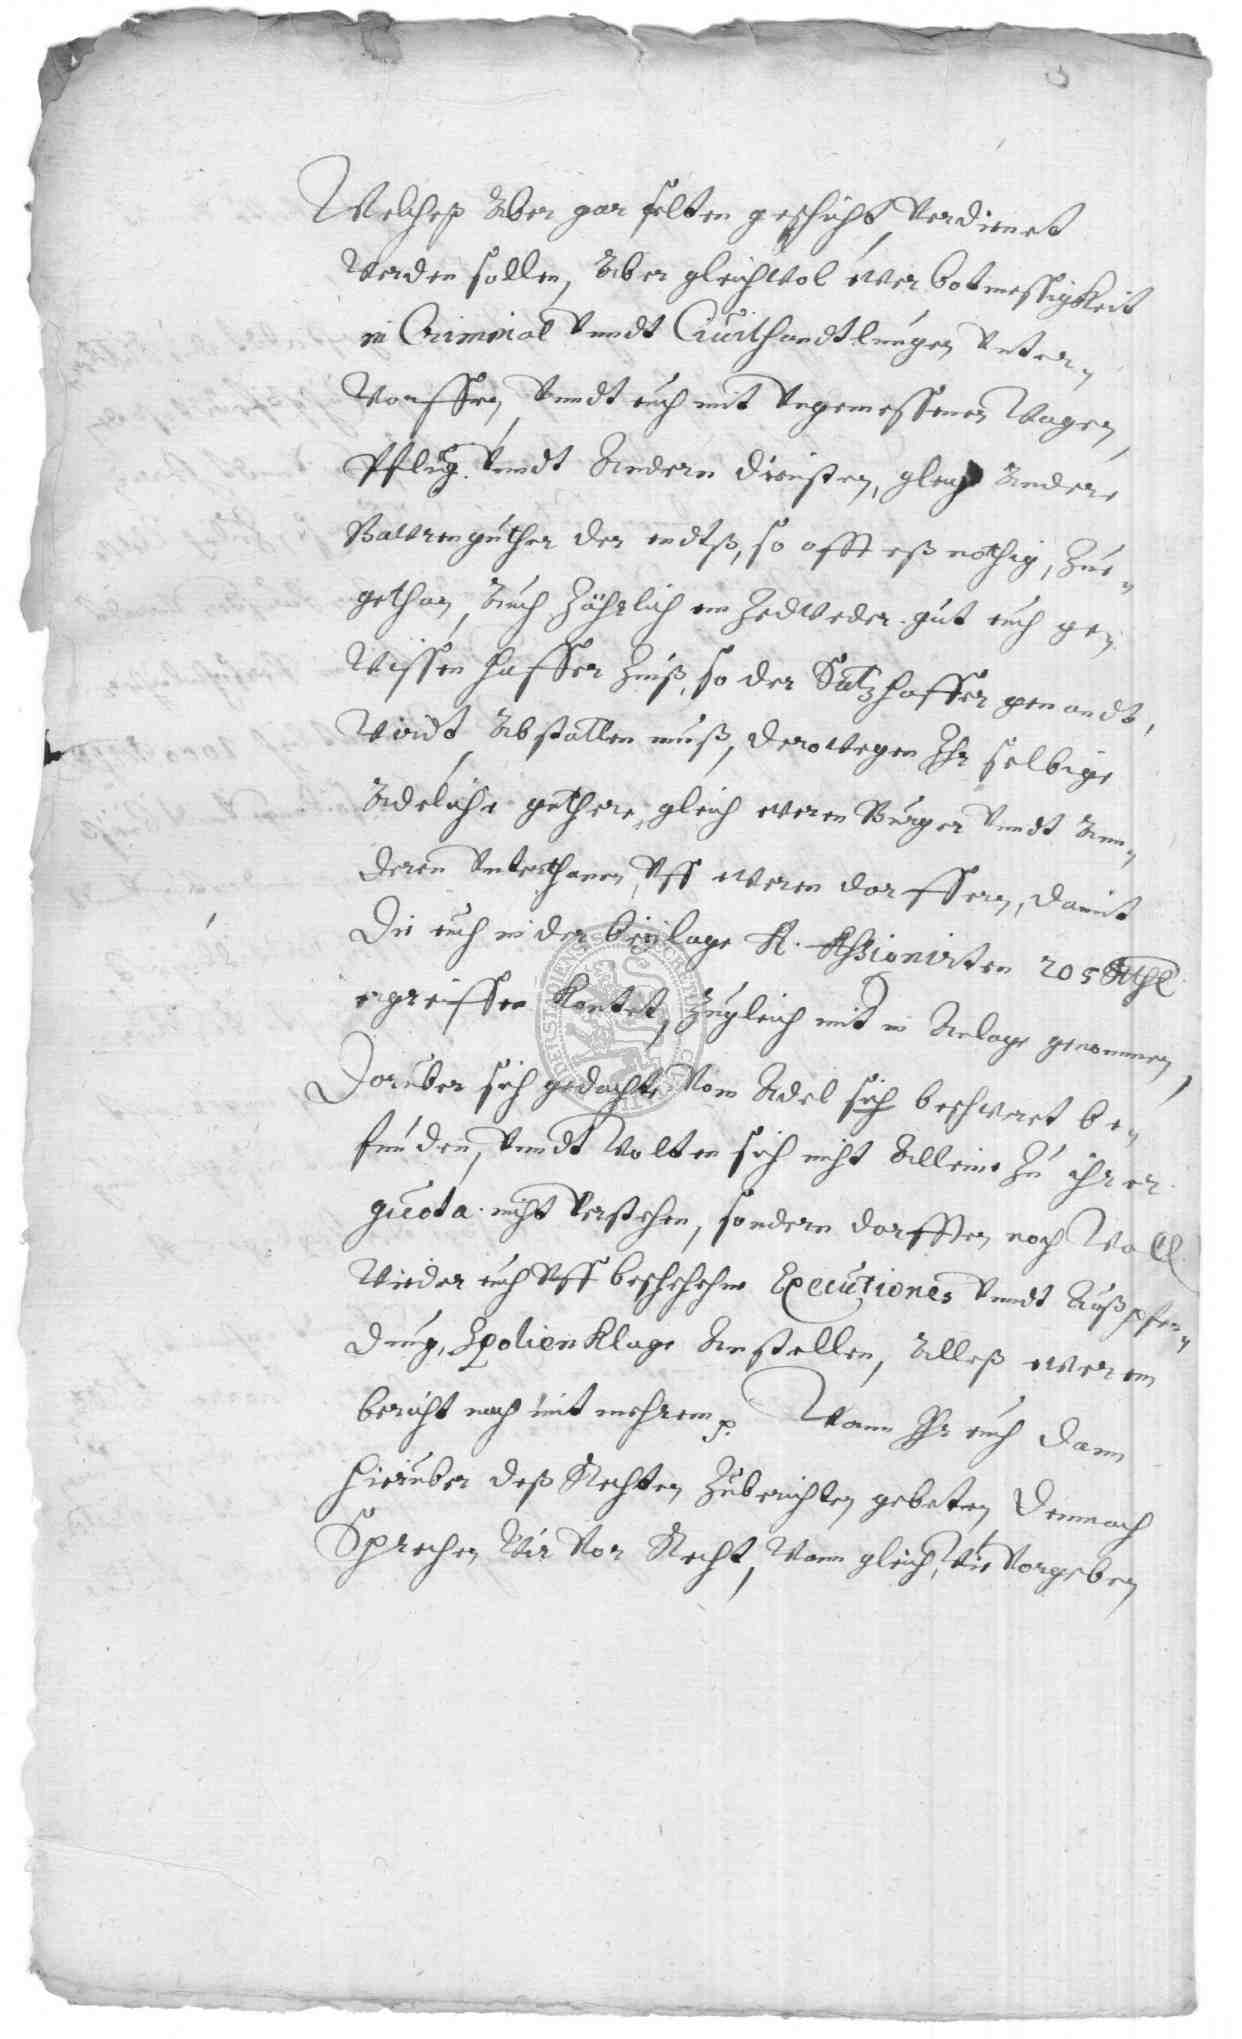 Welcheß Aber gar selten geschicht, Verdienet
Werden sollen, Aber gleichwol ewer botmessigkeit
in Criminal Vnndt Ciuilhandtlungen Vnter-
Worffen, Vnndt euch mit Vngemessenen Wagen
Pflug. Vnndt Andern diensten, gleich Andere
Bawrengüther der endtß, so offt eß nöthig, Zue-
gethan, Auch Jährlich ein Jedweder gut euch ge-
Wissen haffer Zinß, so der Sutzhaffer genandt,
Wirdt Abstatten muß, derowegen Ihr selbige
Adeliche gethere, gleich ewren Bürger Vnndt An-
deren Vnterthanen, Vff ewren dorffern, damit
Die euch in der beylage A. Assionirten 205 Rthl.
ergreiffen kontet, Zugleich mit in Anlage genommen,
Daruber sich gedachte Vom Adel sich beschwert be-
funden, Vnndt Wolten sich nicht Alleine Zu ihrer
quota nicht Verstehen, sondern dorfften noch Woll
Wieder euch Vff beschehene Executiones Vnndt Außpfen-
dung, Spolien Klage Anstellen, Alleß ewrem
bericht nach mit mehrem p. Wann Ihr euch dann
hieruber deß Rechten Zuberichten gebeten, Demnach
Sprechen Wir Vor Recht, Wann gleich, Wie Vorgeben